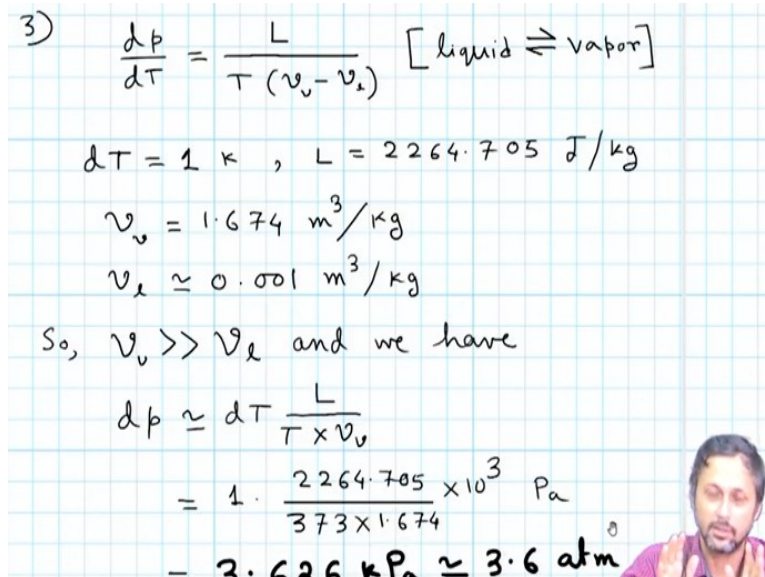 3) dp/dT = L / T (v_v - v_l) [liquid ⇌ vapor]
dT = 1 K , L = 2264.705 J/kg
v_v = 1.674 m³/kg
v_l ≃ 0.001 m³/kg
So, v_v >> v_l and we have
dp ≃ dT L / T × v_v
= 1 . 2264.705 / 373 × 1.674 × 10³ Pa
= 3.626 kPa ≃ 3.6 atm